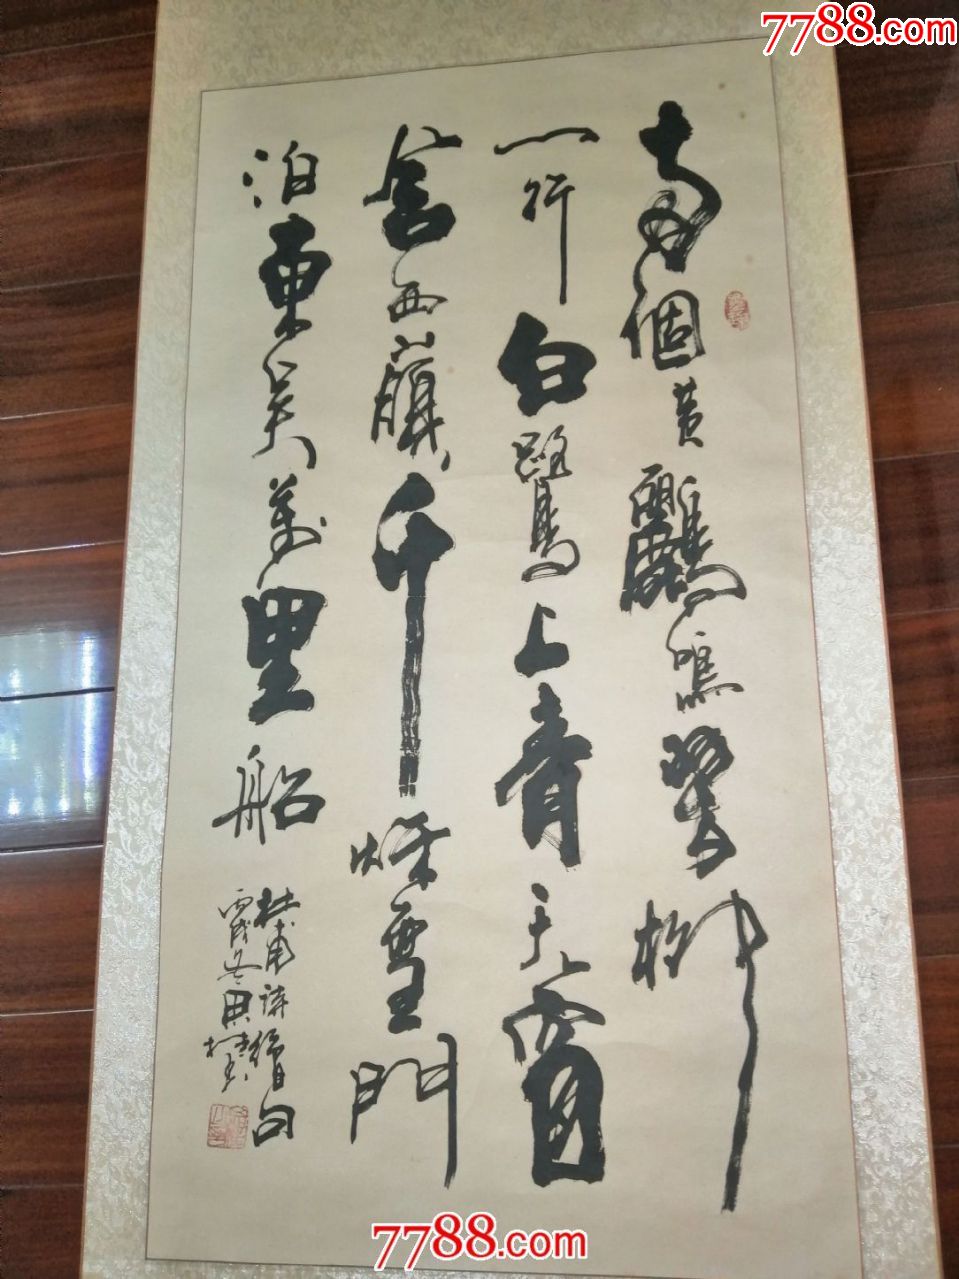 7788.com
兩個黃鸝鳴翠柳
一行白鷺上青天窗
含西嶺千秋雪門
泊東吳萬里船
杜甫詩絕句
丙戌冬
7788.com